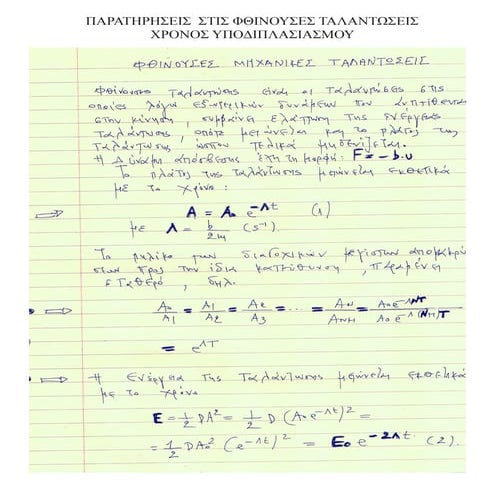 ΠΑΡΑΤΗΡΗΣΕΙΣ ΣΤΙΣ ΦΘΙΝΟΥΣΕΣ ΤΑΛΑΝΤΩΣΕΙΣ
ΧΡΟΝΟΣ ΥΠΟΔΙΠΛΑΣΙΑΣΜΟΥ
ΦΘΙΝΟΥΣΕΣ ΜΗΧΑΝΙΚΕΣ ΤΑΛΑΝΤΩΣΕΙΣ
Φθίνουσες ταλαντώσεις είναι οι ταλαντώσεις στις
οποίες λόγω εξωτερικών δυνάμεων που αντιτίθενται
στην κίνηση, συμβαίνει ελάττωση της ενέργειας
ταλάντωσης, οπότε μειώνεται και το πλάτος της
ταλάντωσης ώσπου τελικά μηδενίζεται.
Η δύναμη απόσβεσης έχει τη μορφή: F = -b.υ
Το πλάτος της ταλάντωσης μειώνεται εκθετικά
με το χρόνο:
⇒ A = A₀ e^{-Λt} (1)
με Λ = b/2m (s⁻¹).
Το πηλίκο των διαδοχικών μεγίστων απομακρύ
σεων προς την ίδια κατεύθυνση, παραμένει
σταθερό, δηλ.
⇒ A₀/A₁ = A₁/A₂ = A₂/A₃ = ... = A_N/A_{N+1} = A₀e^{-ΛNT}/A₀e^{-Λ(N+1)T}
= e^{ΛT}
⇒ Η ενέργεια της ταλάντωσης μειώνεται εκθετικά
με το χρόνο
E = 1/2 DA² = 1/2 D (A₀e^{-Λt})² =
= 1/2 DA₀² (e^{-Λt})² = E₀e^{-2Λt} (2).